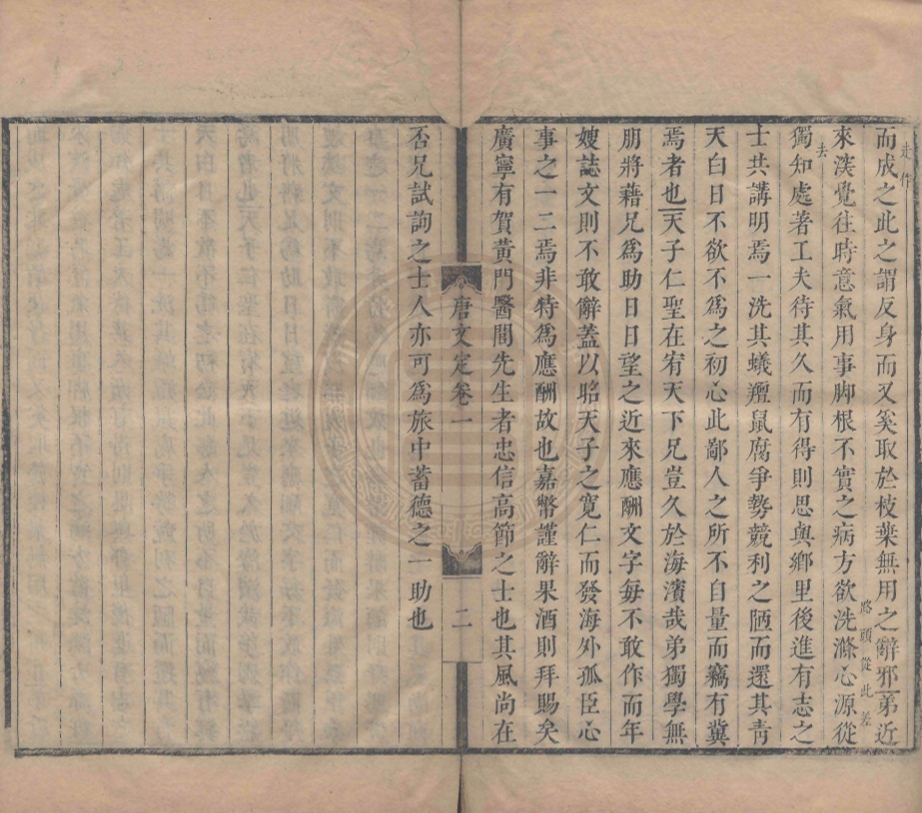 而成之此之謂反身而又奚取於枝葉無用之辭邪弟近
走作
來深覺往時意氣用事脚根不實之病方欲洗滌心源從
路頭從此差
去
獨知處著工夫待其久而有得則思與鄉里後進有志之
士共講明焉一洗其蟻羶鼠腐爭勢競利之陋而還其青
天白日不欲不爲之初心此鄙人之所不自量而竊有冀
焉者也天子仁聖在宥天下兄豈久於海濱哉弟獨學無
朋將藉兄爲助日日望之近來應酬文字每不敢作而年
嫂誌文則不敢辭蓋以昭天子之寛仁而發海外孤臣心
事之一二焉非特爲應酬故也嘉幣謹辭果酒則拜賜矣
廣寧有賀黃門醫閭先生者忠信高節之士也其風尚在
唐文定卷一
二
否兄試詢之士人亦可爲旅中蓄德之一助也